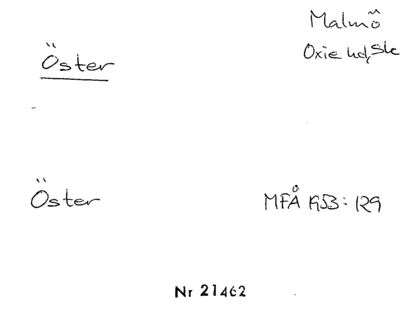 Malmö
Öster
Oxie hd, Sk
Öster
MFÅ 1953: 129
Nr 21462